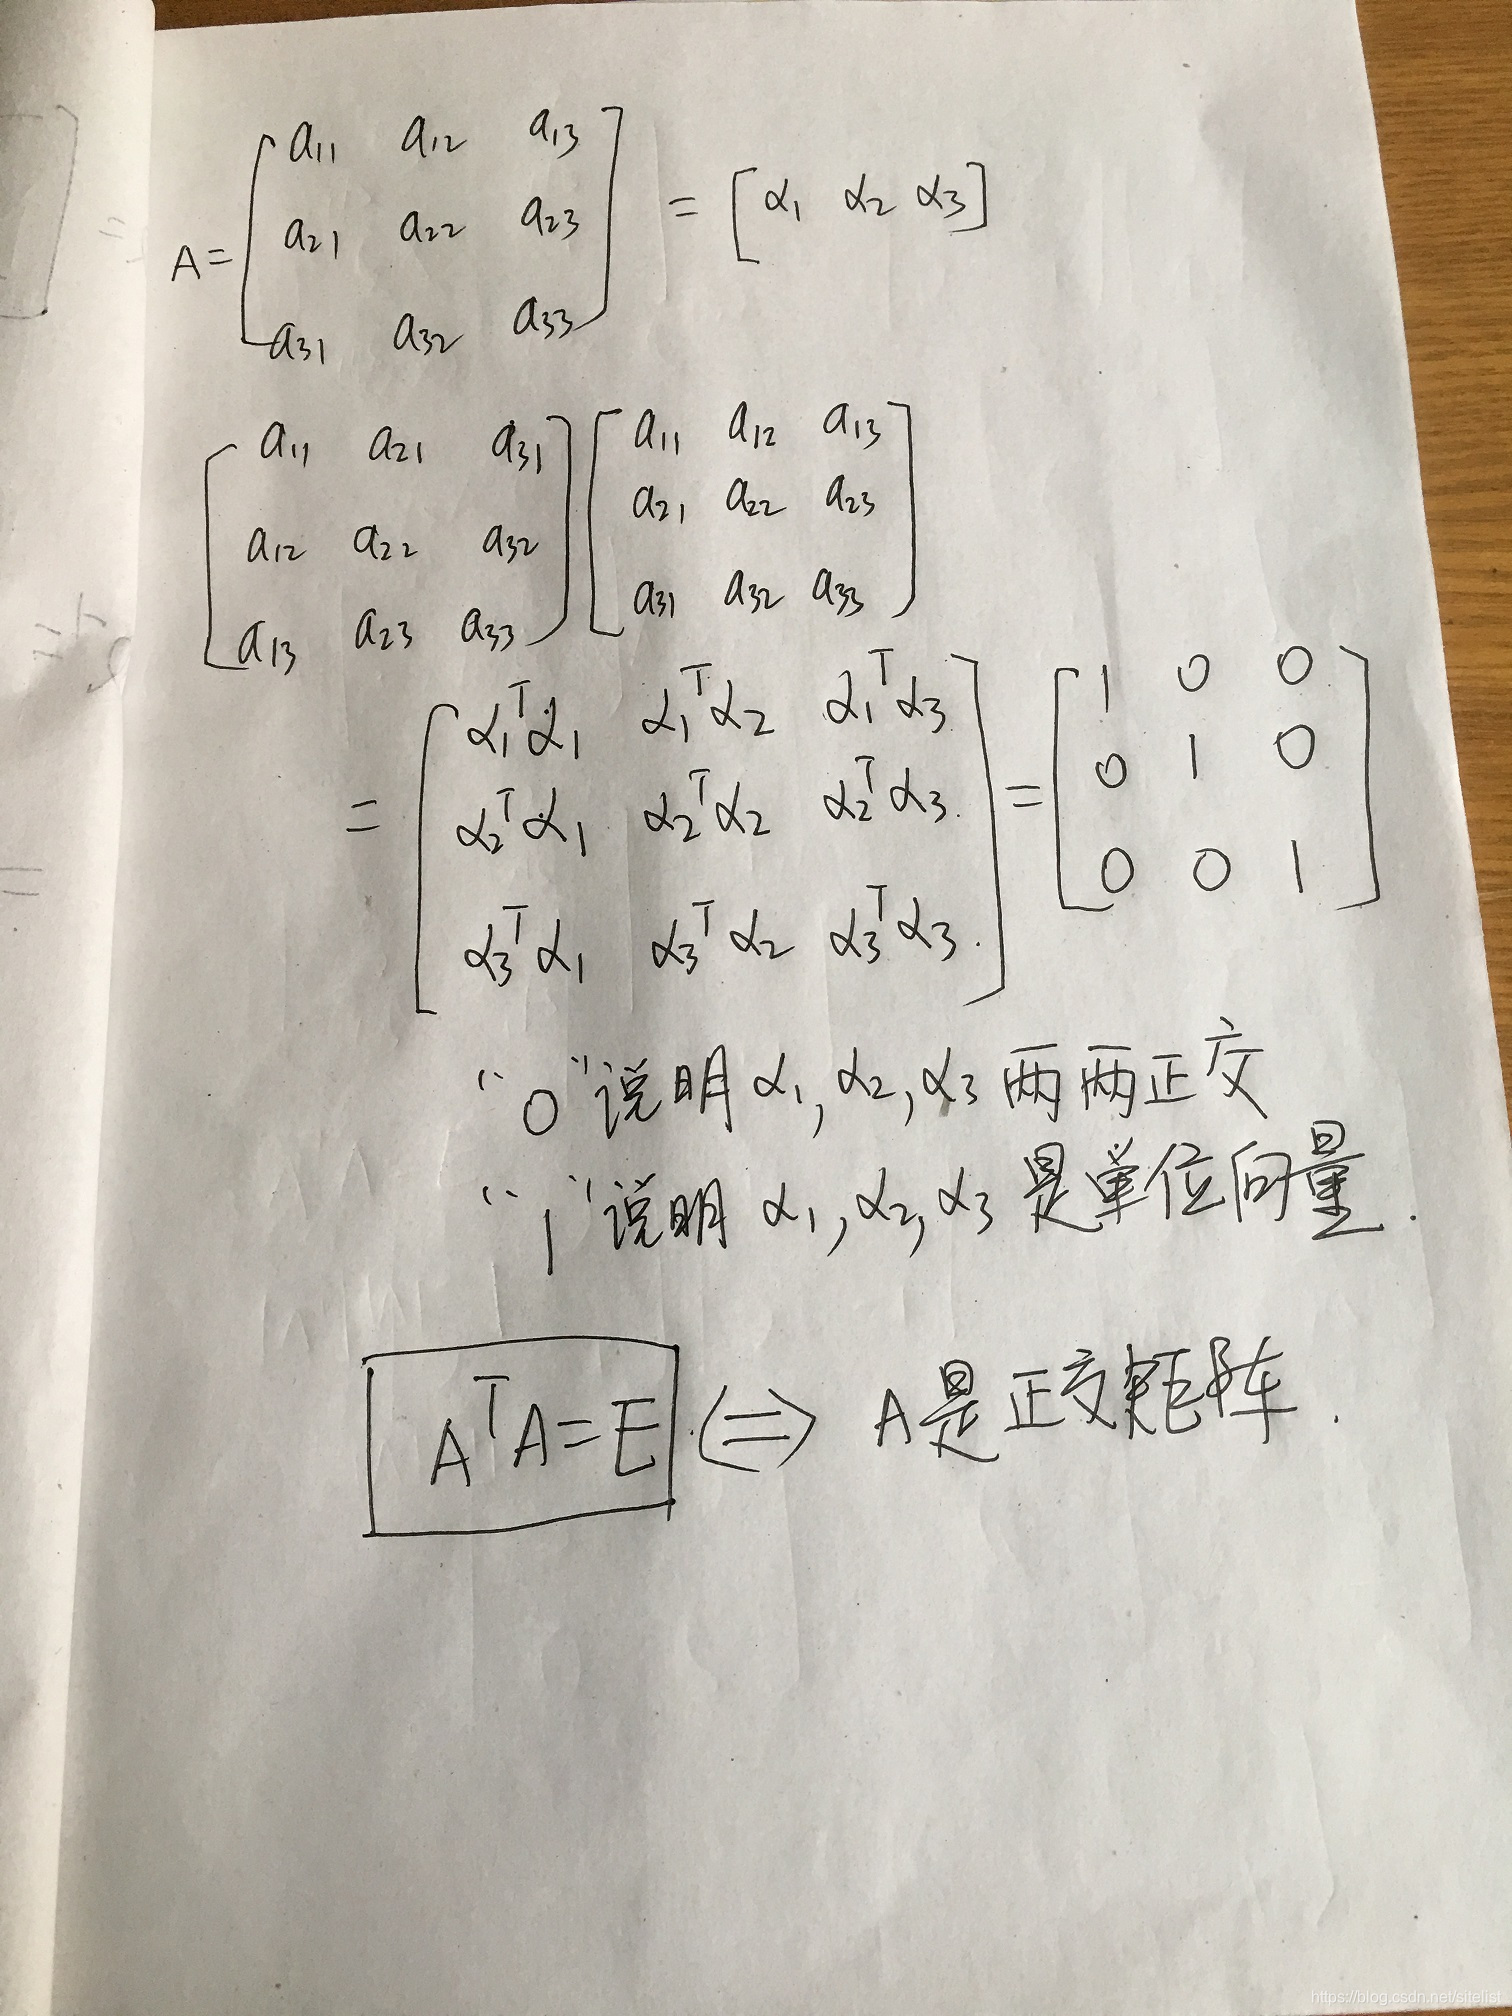 A = [ a11 a12 a13 ; a21 a22 a23 ; a31 a32 a33 ] = [ α1 α2 α3 ]
[ a11 a21 a31 ; a12 a22 a32 ; a13 a23 a33 ] [ a11 a12 a13 ; a21 a22 a23 ; a31 a32 a33 ]
= [ α1ᵀα1 α1ᵀα2 α1ᵀα3 ; α2ᵀα1 α2ᵀα2 α2ᵀα3 ; α3ᵀα1 α3ᵀα2 α3ᵀα3 ] = [ 1 0 0 ; 0 1 0 ; 0 0 1 ]
“0”说明 α1, α2, α3 两两正交
“1”说明 α1, α2, α3 是单位向量.
AᵀA=E. ⇔ A是正交矩阵.
https://blog.csdn.net/sitelist